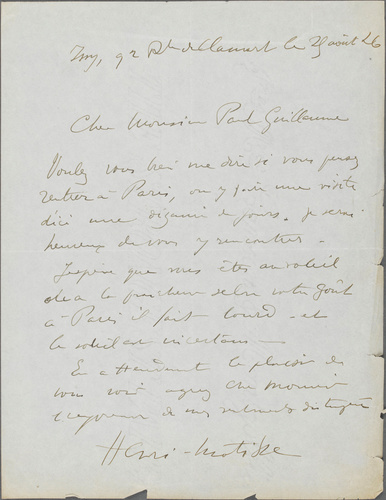 Issy, 92 Rte de Clamart le 29 août 26
Cher Monsieur Paul Guillaume
Voulez vous bien me dire si vous pensez
rentrer à Paris, ou y faire une visite
d'ici une dizaine de jours. Je serai
heureux de vous y rencontrer.
J'espère que vous êtes au soleil
ou à la fraîcheur selon votre goût
à Paris il fait lourd et
le soleil est incertain
En attendant le plaisir de
vous voir agréez cher Monsieur
de mes sentiments distingués
Henri-Matisse